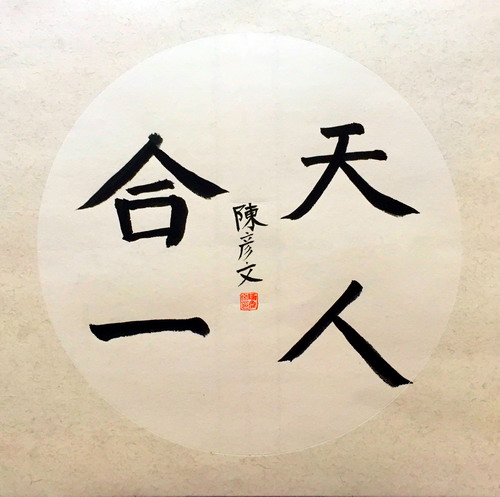 天人
合一
陳彦文